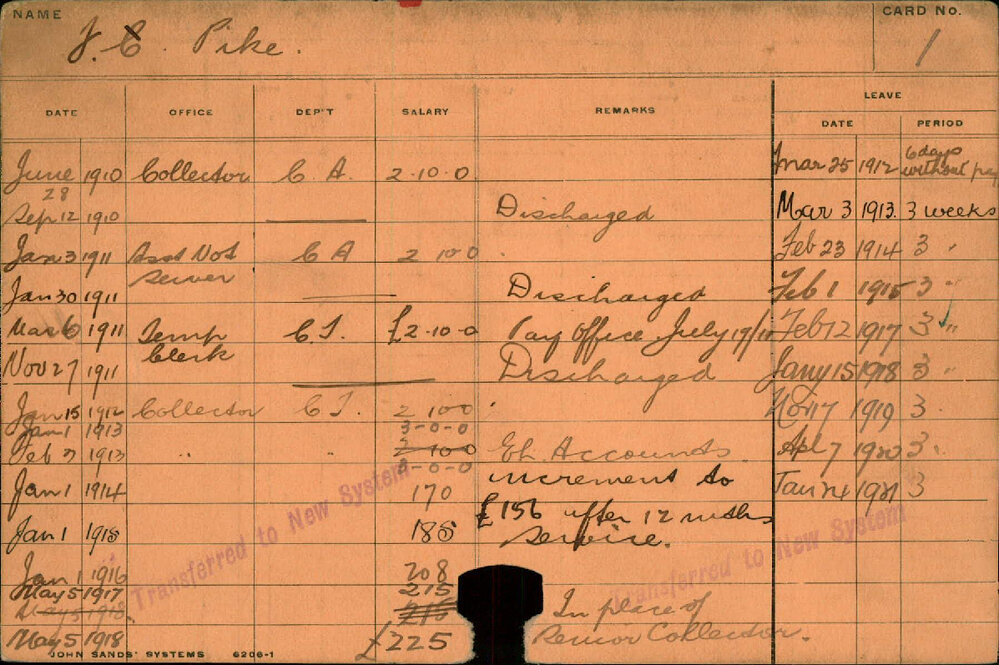 NAME
J. C. Pike.
CARD No.
1
DATE OFFICE DEP'T SALARY REMARKS
LEAVE
DATE PERIOD
June 28 1910 Collector C. A. 2.10.0
Sep 12 1910 Discharged
Jan 3 1911 Asst Not Server C A 2 10 0
Jan 30 1911 Discharged
Mar 6 1911 Temp Clerk C.T. £2.10.0 Pay Office July 19/11
Nov 27 1911 Discharged
Jan 15 1912 Collector C T. 2 10 0
Jan 1 1913 3-0-0
Feb 7 1913 " " 2 10 0 Accounts
3-0-0 increment to
Jan 1 1914 170 £156 after 12 mths
Jan 1 1915 185 service.
Jan 1 1916 208
May 5 1917 215
May 5 1918. 215 In place of
May 5 1918 £225 Senior Collector.
Mar 25 1912 6 days without pay
Mar 3 1913. 3 weeks
Feb 23 1914 3 "
Feb 1 1915 3 "
Feb 12 1917 3 "
Jany 15 1918 3 "
Nov 17 1919 3
Apl 7 1920 3
Jan 24 1921 3
Transferred to New System
Transferred to New System
JOHN SANDS' SYSTEMS 6206-1